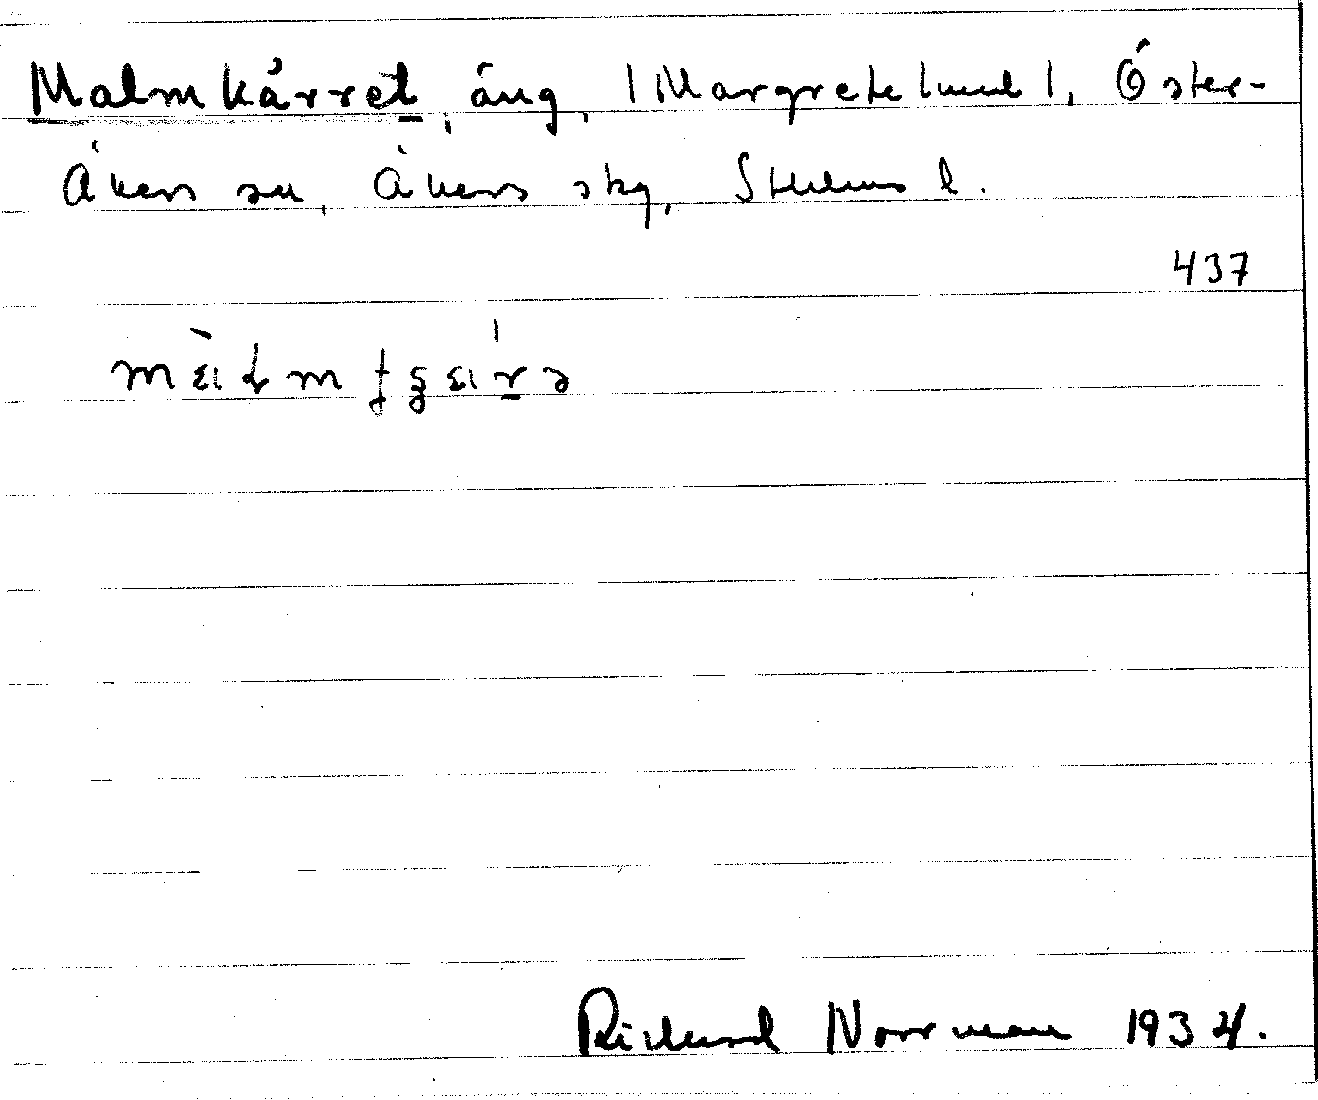 Malmkärret, äng, [Margretelund], Öster-
Åkers sn, Åkers skg, Sthlms l.
437
Rickard Norrman 1934.